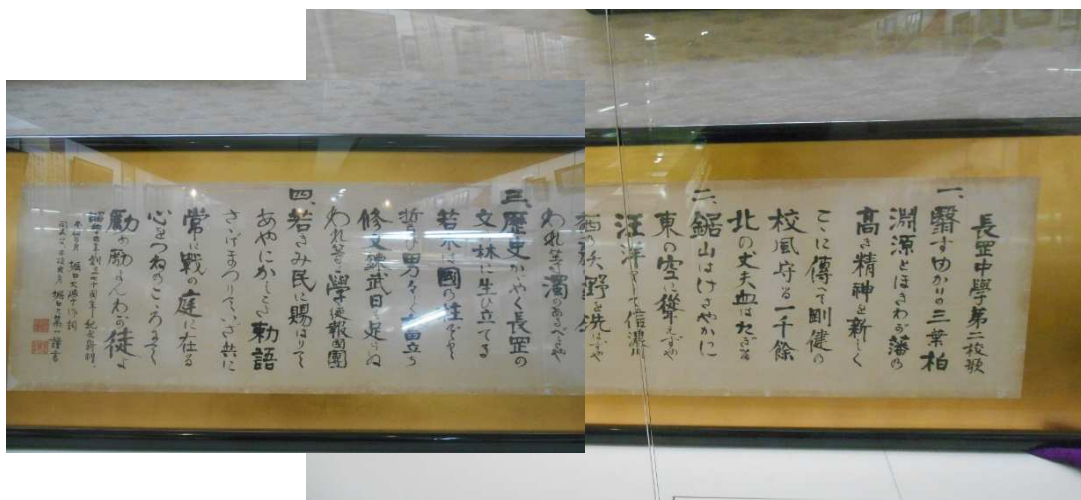 長岡中學第二校歌
一、翳すゆかりの三葉柏
淵源とほきわが藩の
髙き精神を新しく
ここに傳へて剛健の
校風守る一千餘
北の丈夫血はたぎる
二、鋸山はけざやかに
東の空に聳えずや
汪洋として信濃川
西の沃野を洗はずや
われ等濁のあるべしや
三、歴史かゞやく長岡の
文の林に生ひ立てる
若木は國の柱ぞと
哲き男々しく奮立ち
修文錬武日も足らぬ
われ等學徒報國團
四、若きみ民に賜はりて
あやにかしこき勅語
さゝげまつりていざ共に
常に戰の庭に在る
心をつねのこころにて
勵め勵めわが徒よ
堀口大學 作詞